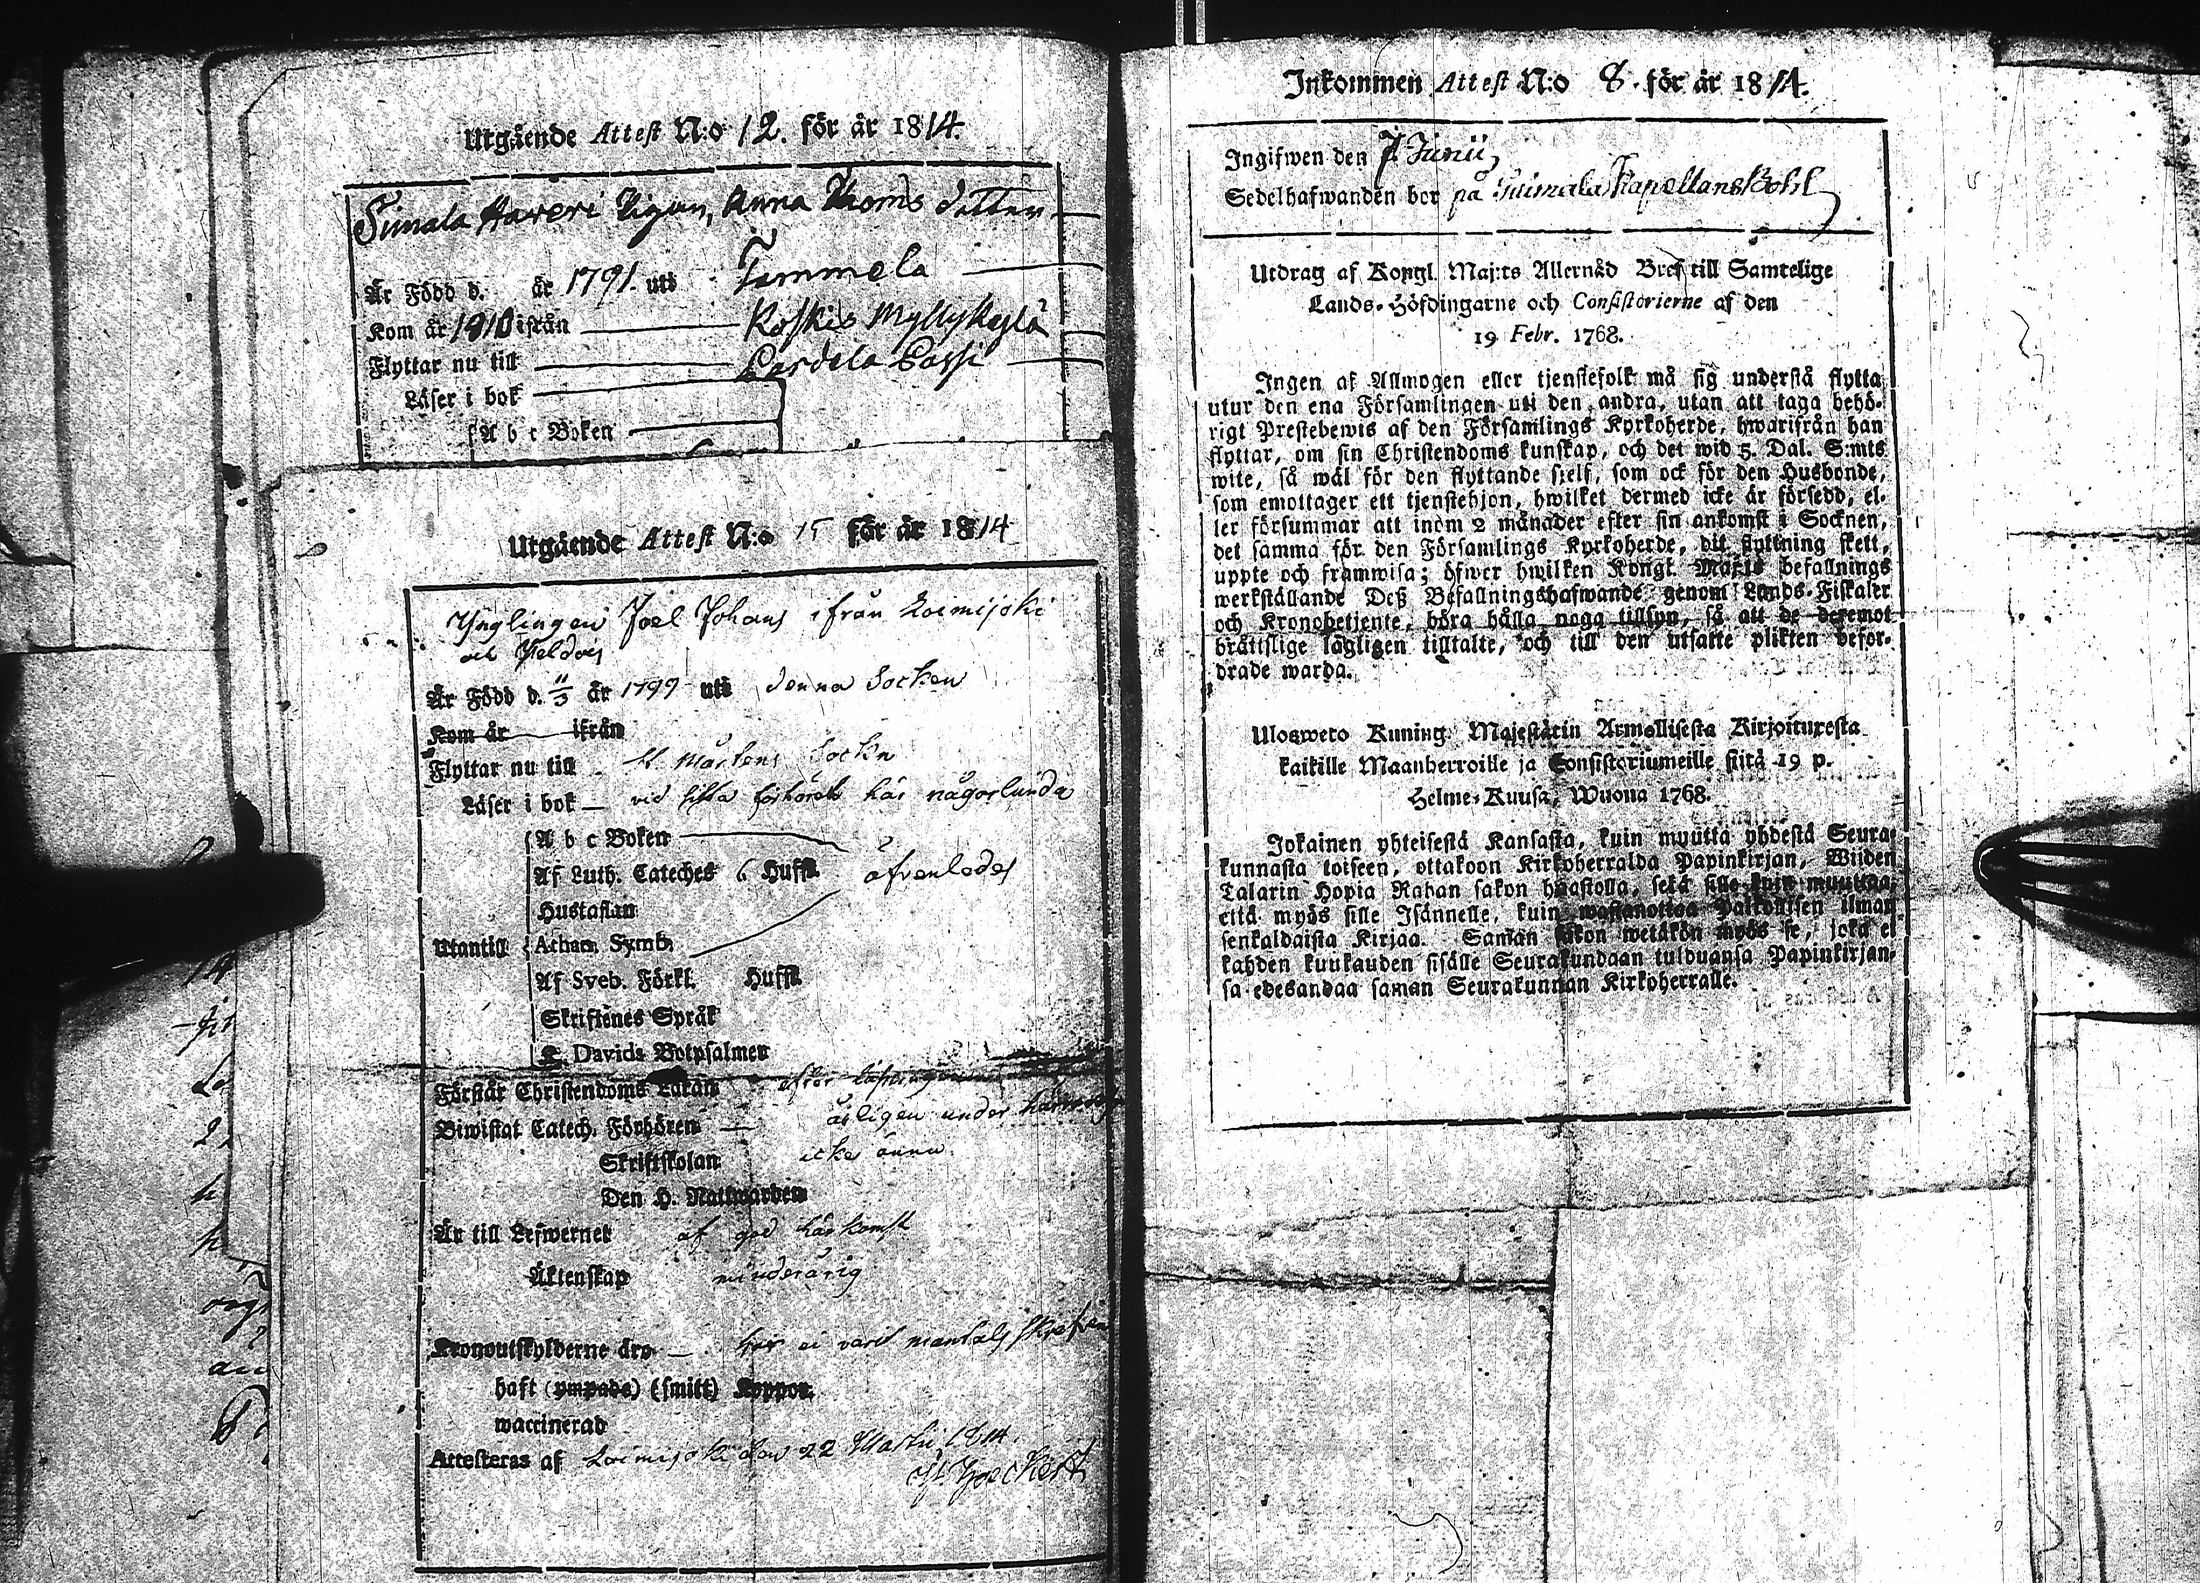 Utgående Attest N:o 12. för år 1814.
Simala Haveri Pigan, Anna Thoms dotter
Är Född d. år 1791. uti Tammela
Kom år 1810 ifrån Koskis Myllykylä
Flyttar nu till
Läser i bok
A b c Boken
Utgående Attest N:o 15 för år 1814
Ynglingen Joel Johans ifrån Loimijoki
och
Är Född d. 11/3 år 1799 uti denna Socken
Kom år ifrån
Flyttar nu till St. Mårtens Sockn
Läser i bok – vid sista förhöret här någorlunda
A b c Boken
Af Luth. Cateches 6 Hufst. äfvenledes
Hustaflan
Utantill Athan. Symb.
Af Sveb. Förkl. Hufst.
Skriftenes Språk
Davids Botpsalmer
Förstår Christendoms Läran efter
Biwistat Catech. Förhören – årligen under
Skriftskolan icke ännu
Den H. Nattwarden
Är till Lefwernet af god härkomst
Äktenskap minderårig
Kronoutskylderne äro – har ei varit mantals skrefven
haft (ympade) (smitt) Koppor.
waccinerad
Attesteras af Loimijoki den 22 Martii 1814.
Inkommen Attest N:o 8. för år 1814.
Ingifwen den 7 Junii,
Sedelhafwanden bor på Kapellans Bohl
Utdrag af Kongl. Maj:ts Allernåd Bref till Samtelige
Lands-Höfdingarne och Consistorierne af den
19 Febr. 1768.
Ingen af Allmogen eller tjenstefolk må sig understå flytta
utur den ena Församlingen uti den andra, utan att taga behö-
rigt Prestebewis af den Församlings Kyrkoherde, hwarifrån han
flyttar, om sin Christendoms kunskap, och det wid 5. Dal. S:mts
wite, så wäl för den flyttande sielf, som ock för den Husbonde,
som emottager ett tjenstehjon, hwilket dermed icke är försedd, el-
ler försummar att inom 2 månader efter sin ankomst i Socknen,
det samma för den Församlings Kyrkoherde, dit flyttning skett,
uppte och framwisa; öfwer hwilken Kongl. Maj:ts befallnings
werkställande Deß Befallningshafwande genom Lands-Fiskaler
och Kronobetjente, böra hålla noga tillsyn, så att de deremot
bråttslige lagligen tilltalte, och till den utsatte plikten befor-
drade warda.
Ulosweto Kuning. Majestätin Armollisesta Kirjoituxesta
kaikille Maanherroille ja Consistoriumeille siitä 19 p.
Helme-Kuusa, Wuona 1768.
Jokainen yhteisestä Kansasta, kuin muutta yhdestä Seura-
kunnasta toiseen, ottakoon Kirkoherralda Papinkirjan, Wiiden
Talarin Hopia Rahan sakon haastolla, sekä sille kuin muuttaa,
että myös sille Isännelle, kuin wastanottaa Palkollisen ilman
senkaldaista Kirjaa. Saman sakon wetäkön myös se, joka ei
kahden kuukauden sisälle Seurakundaan tulduansa Papinkirjan-
sa edesandaa saman Seurakunnan Kirkoherralle.